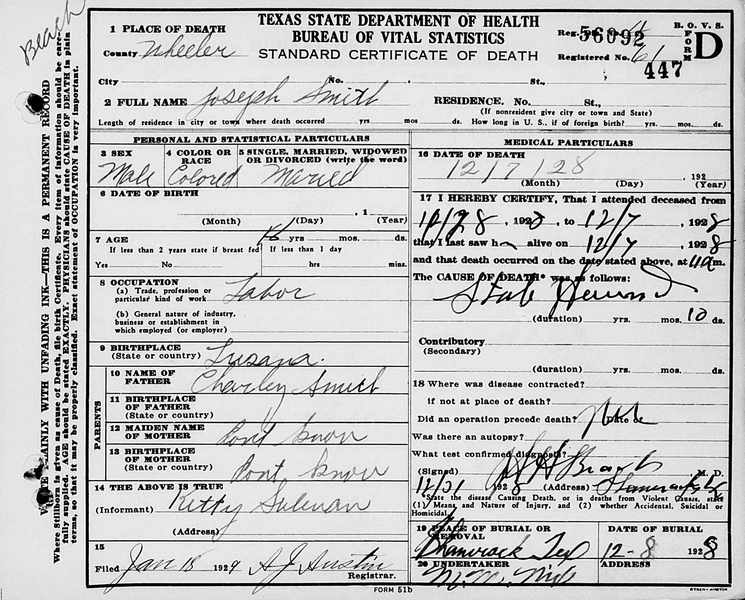 Beach
TEXAS STATE DEPARTMENT OF HEALTH
BUREAU OF VITAL STATISTICS
STANDARD CERTIFICATE OF DEATH
Reg. 56092
Registered No. 61
447
B. O. V. S.
FORM
D
WRITE PLAINLY WITH UNFADING INK—THIS IS A PERMANENT RECORD
1 PLACE OF DEATH
County Wheeler
City No. St.,
2 FULL NAME Joseph Smith RESIDENCE. No. St.,
(If nonresident give city or town and State)
Length of residence in city or town where death occurred yrs. mos ds. How long in U. S., if of foreign birth? yrs. mos. ds.
PERSONAL AND STATISTICAL PARTICULARS
3 SEX
Male
4 COLOR OR RACE
Colored
5 SINGLE, MARRIED, WIDOWED
OR DIVORCED (write the word)
Maried
6 DATE OF BIRTH
, 1
(Month) (Day) (Year)
7 AGE yrs mos. ds.
If less than 2 years state if breast fed If less than 1 day
Yes No hrs mins.
8 OCCUPATION
(a) Trade, profession or
particular kind of work Labor
(b) General nature of industry,
business or establishment in
which employed (or employer)
9 BIRTHPLACE
(State or country) Lusana.
PARENTS
10 NAME OF
FATHER Charley Smith
11 BIRTHPLACE
OF FATHER
(State or country)
12 MAIDEN NAME
OF MOTHER Dont know
13 BIRTHPLACE
OF MOTHER
(State or country) Dont know
14 THE ABOVE IS TRUE
(Informant) Kitty
(Address)
15
Filed Jan 18 1929 A J Austin
Registrar.
MEDICAL PARTICULARS
16 DATE OF DEATH
12/7/28 , 192
(Month) (Day) (Year)
17 I HEREBY CERTIFY, That I attended deceased from
192 , to 12/7 , 1928
that I last saw h alive on 12/7 , 1928
and that death occurred on the date stated above, at 11 a m.
The CAUSE OF DEATH* was as follows:
(duration) yrs. mos. 10 ds.
Contributory
(Secondary)
(duration) yrs. mos. ds.
18 Where was disease contracted?
if not at place of death?
Did an operation precede death? Date of
Was there an autopsy?
What test confirmed diagnosis?
(Signed) M. D.
12/31 1928 (Address)
*State the disease Causing Death, or in deaths from Violent Causes, state
(1) Means and Nature of Injury, and (2) whether Accidental, Suicidal or
Homicidal.
19 PLACE OF BURIAL OR
REMOVAL
Shamrock Tex
DATE OF BURIAL
12-8 1928
20 UNDERTAKER
ADDRESS
FORM 51b